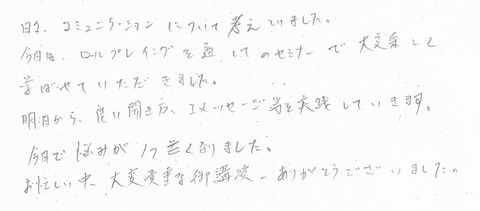 日々、コミュニケーションについて考えていました。
今日は、ロールプレイングを通してのセミナーで大変楽しく
学ばせていただきました。
明日から、良い聞き方、Iメッセージ等を実践していきます。
今日で悩みが1つ亡くなりました。
お忙しい中、大変貴重な御講演、ありがとうございました。